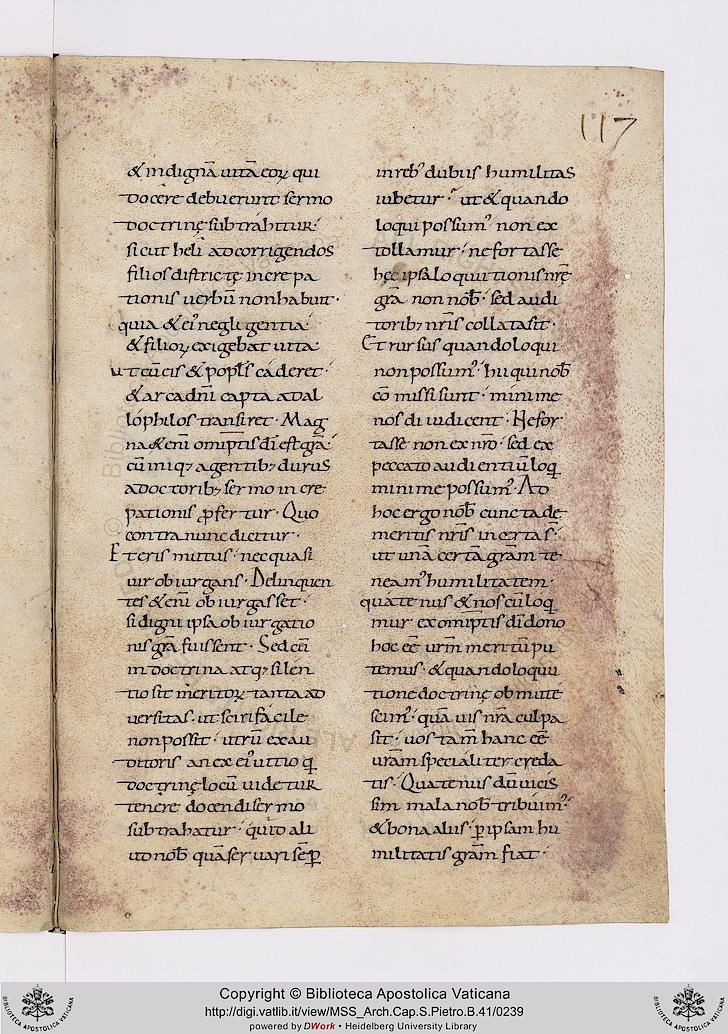 117
& indignā uitā eoꝝ qui
docere debuerunt sermo
doctrinę subtrahitur·
sicut heli ad corrigendos
filios districtę increpa
tionis uerbū non habuit·
quia & ei' negligentia
& filioꝝ exigebat uita·
ut cū eis & popl̄s caderet·
& arca dn̄i capta ad al
lophilos transiret· Mag
na & eni omīptis dī est gr̄a·
cū iniq; agentib; durus
a doctorib; sermo incre
pationis ꝓfertur· Quo
contra nunc dicitur·
Et eris mutus· nec quasi
uir obiurgans· Delinquen
tes & eni obiurgasset·
si digni ipsa obiurgatio
nis gr̄a fuissent· Sed cū
in doctrina atq; silen
tio sit meritoꝝ tanta ad
uersitas· ut sciri facile
non possit· utrū ex au
ditoris an ex ei' uitio q̄
doctrinę locū uidetur
tenere docendi sermo
subtrahatur· quid ali
ud nob̄ quā seruari sēꝑ
in reb' dubiis humilitas
iubetur· ut & quando
loqui possum' non ex
tollamur· ne fortasse
hęc ipsa loquutionis nr̄ę
gr̄a non nob̄· sed audi
torib; nr̄is collata sit·
Et rursus quando loqui
non possum'· hii qui nob̄
cōmissi sunt· minime
nos diiudicent· Ne for
tasse non ex nr̄o· sed ex
peccato audientiū loq
minime possum'· Ad
hoc ergo nob̄ cuncta de
meritis nr̄is incerta s̄·
ut unā certā gr̄am te
neam' humilitatem·
quatenus & nos cū loq
mur ex omīptis dī dono
hoc eē urm̄ meritū pu
temus· & quando loqui
tione doctrinę obmute
scim'· quāuis nr̄a culpa
sit· uos tam̄ hanc eē
ur̄am specialiter creda
tis· Quatenus dū uicis
sim mala nob̄ tribuim'·
& bona aliis· ꝑ ipsam hu
militatis gr̄am fiat·
BIBLIOTECA APOSTOLICA VATICANA
Copyright © Biblioteca Apostolica Vaticana
http://digi.vatlib.it/view/MSS_Arch.Cap.S.Pietro.B.41/0239
powered by DWork • Heidelberg University Library
BIBLIOTECA APOSTOLICA VATICANA